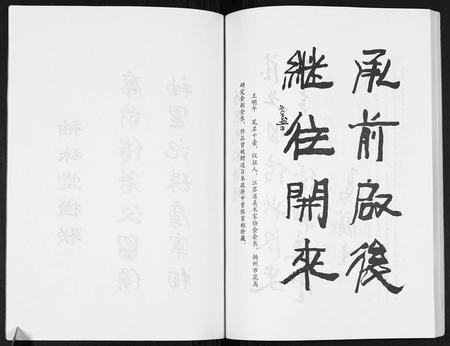 承前啟後
繼往開來
王明午 笔名十壶、仪征人、江苏省美术家协会会长、扬州市花鸟
研究会副会长、作品曾被赠送日本政府中曾根首相珍藏。